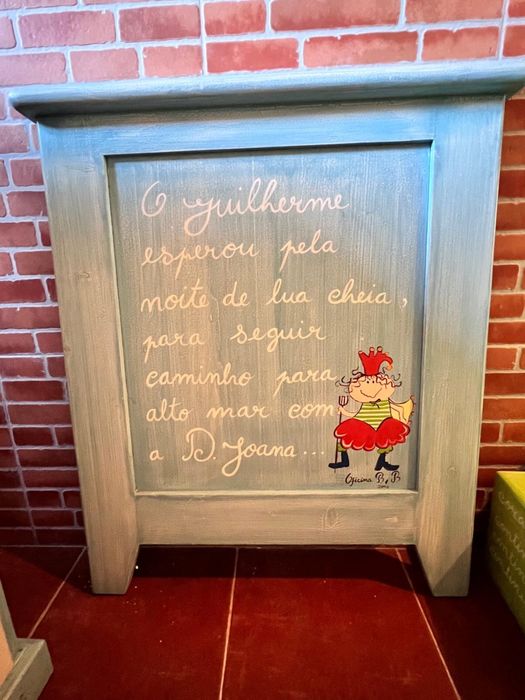 O Guilherme
esperou pela
noite de lua cheia,
para seguir
caminho para
alto mar com
a D. Joana...
Oficina B, B